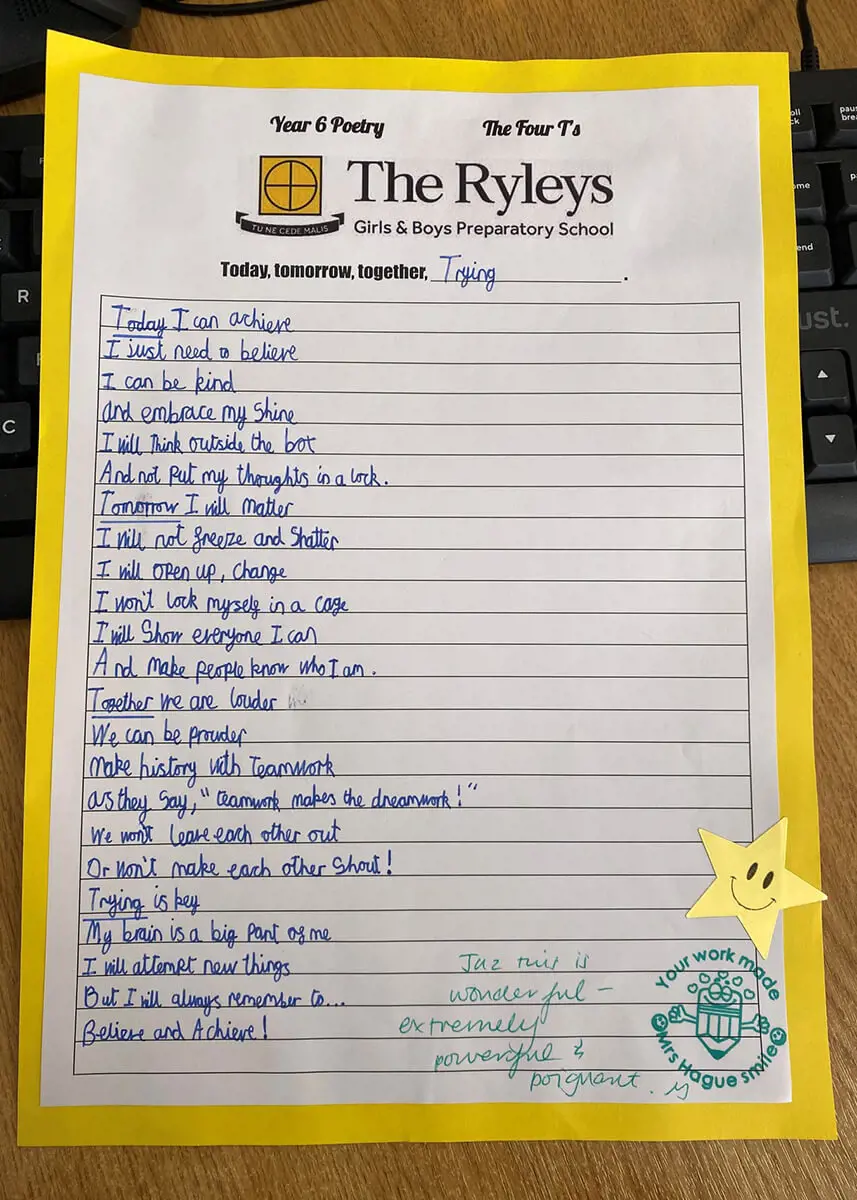 Year 6 Poetry The Four T's
The Ryleys
TU NE CEDE MALIS
Girls & Boys Preparatory School
Today, tomorrow, together, Trying.
Today I can achieve
I just need to believe
I can be kind
and embrace my Shine
I will Think outside the box
And not put my thoughts in a lock.
Tomorrow I will matter
I will not freeze and Shatter
I will open up, change
I won't lock myself in a cage
I will Show everyone I can
And make people know who I am.
Together we are louder
We can be prouder
Make history with Teamwork
as they say, "teamwork makes the dreamwork!"
We won't leave each other out
Or won't make each other Shout!
Trying is key
My brain is a big part of me
I will attempt new things
But I will always remember to...
Believe and Achieve!
Jaz this is
wonderful -
extremely
powerful &
poignant.
Your work made
Mrs Hague smile
R
C
end
ust.